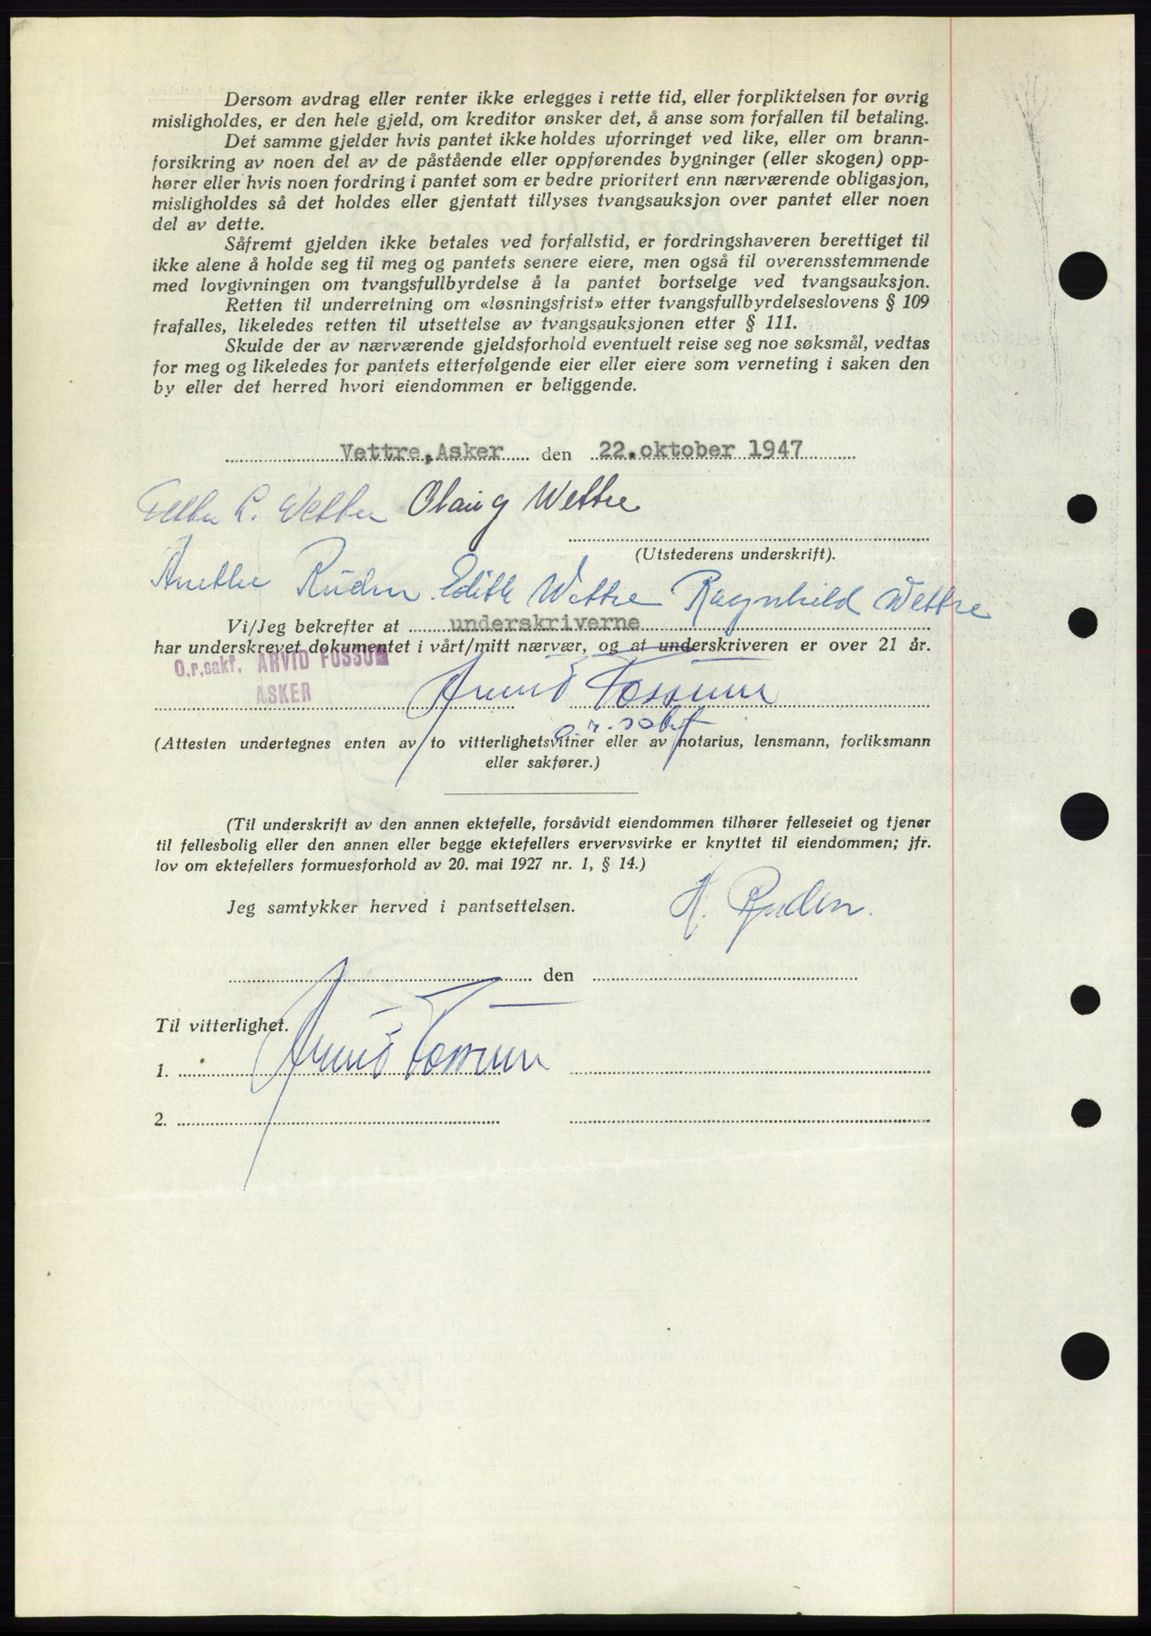 Dersom avdrag eller renter ikke erlegges i rette tid, eller forpliktelsen for øvrig
misligholdes, er den hele gjeld, om kreditor ønsker det, å anse som forfallen til betaling.
Det samme gjelder hvis pantet ikke holdes uforringet ved like, eller om brann-
forsikring av noen del av de påstående eller oppførendes bygninger (eller skogen) opp-
hører eller hvis noen fordring i pantet som er bedre prioritert enn nærværende obligasjon,
misligholdes så det holdes eller gjentatt tillyses tvangsauksjon over pantet eller noen
del av dette.
Såfremt gjelden ikke betales ved forfallstid, er fordringshaveren berettiget til
ikke alene å holde seg til meg og pantets senere eiere, men også til overensstemmende
med lovgivningen om tvangsfullbyrdelse å la pantet bortselge ved tvangsauksjon.
Retten til underretning om «løsningsfrist» etter tvangsfullbyrdelseslovens § 109
frafalles, likeledes retten til utsettelse av tvangsauksjonen etter § 111.
Skulde der av nærværende gjeldsforhold eventuelt reise seg noe søksmål, vedtas
for meg og likeledes for pantets etterfølgende eier eller eiere som verneting i saken den
by eller det herred hvori eiendommen er beliggende.
Vettre, Asker den 22. oktober 1947
L. Wettre Olaug Wettre
(Utstederens underskrift).
Anethe Ruden Edith Wettre Ragnhild Wettre
Vi/Jeg bekrefter at underskriverne
har underskrevet dokumentet i vårt/mitt nærvær, og at underskriveren er over 21 år.
O.r.sakf. ARVID FOSSUM
ASKER
Arvid Fossum
o.r.sakf
(Attesten undertegnes enten av to vitterlighetsvitner eller av notarius, lensmann, forliksmann
eller sakfører.)
(Til underskrift av den annen ektefelle, forsåvidt eiendommen tilhører felleseiet og tjener
til fellesbolig eller den annen eller begge ektefellers ervervsvirke er knyttet til eiendommen; jfr.
lov om ektefellers formuesforhold av 20. mai 1927 nr. 1, § 14.)
Jeg samtykker herved i pantsettelsen.
H. Ruden.
den
Til vitterlighet.
1. Arvid Fossum
2.